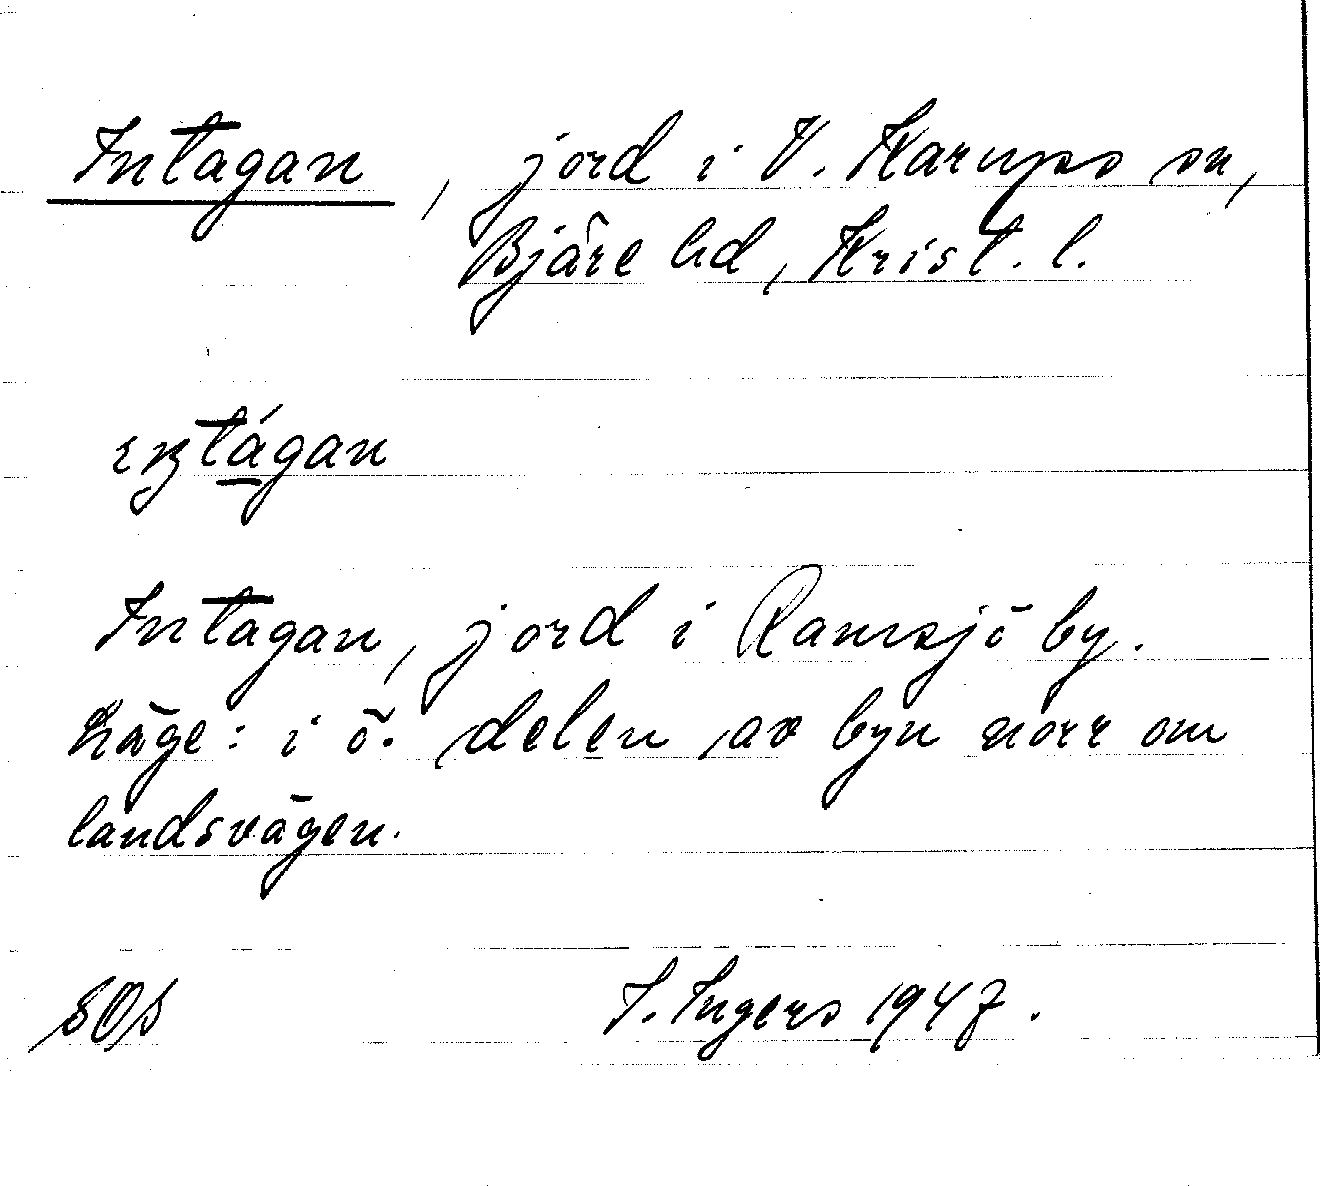 Intagan, jord i V. Karups sn,
Bjäre hd, Krist. l.
Intagan, jord i Ramsjö by.
Läge: i ö. delen av byn norr om
landsvägen.
SOS I. Ingers 1947.